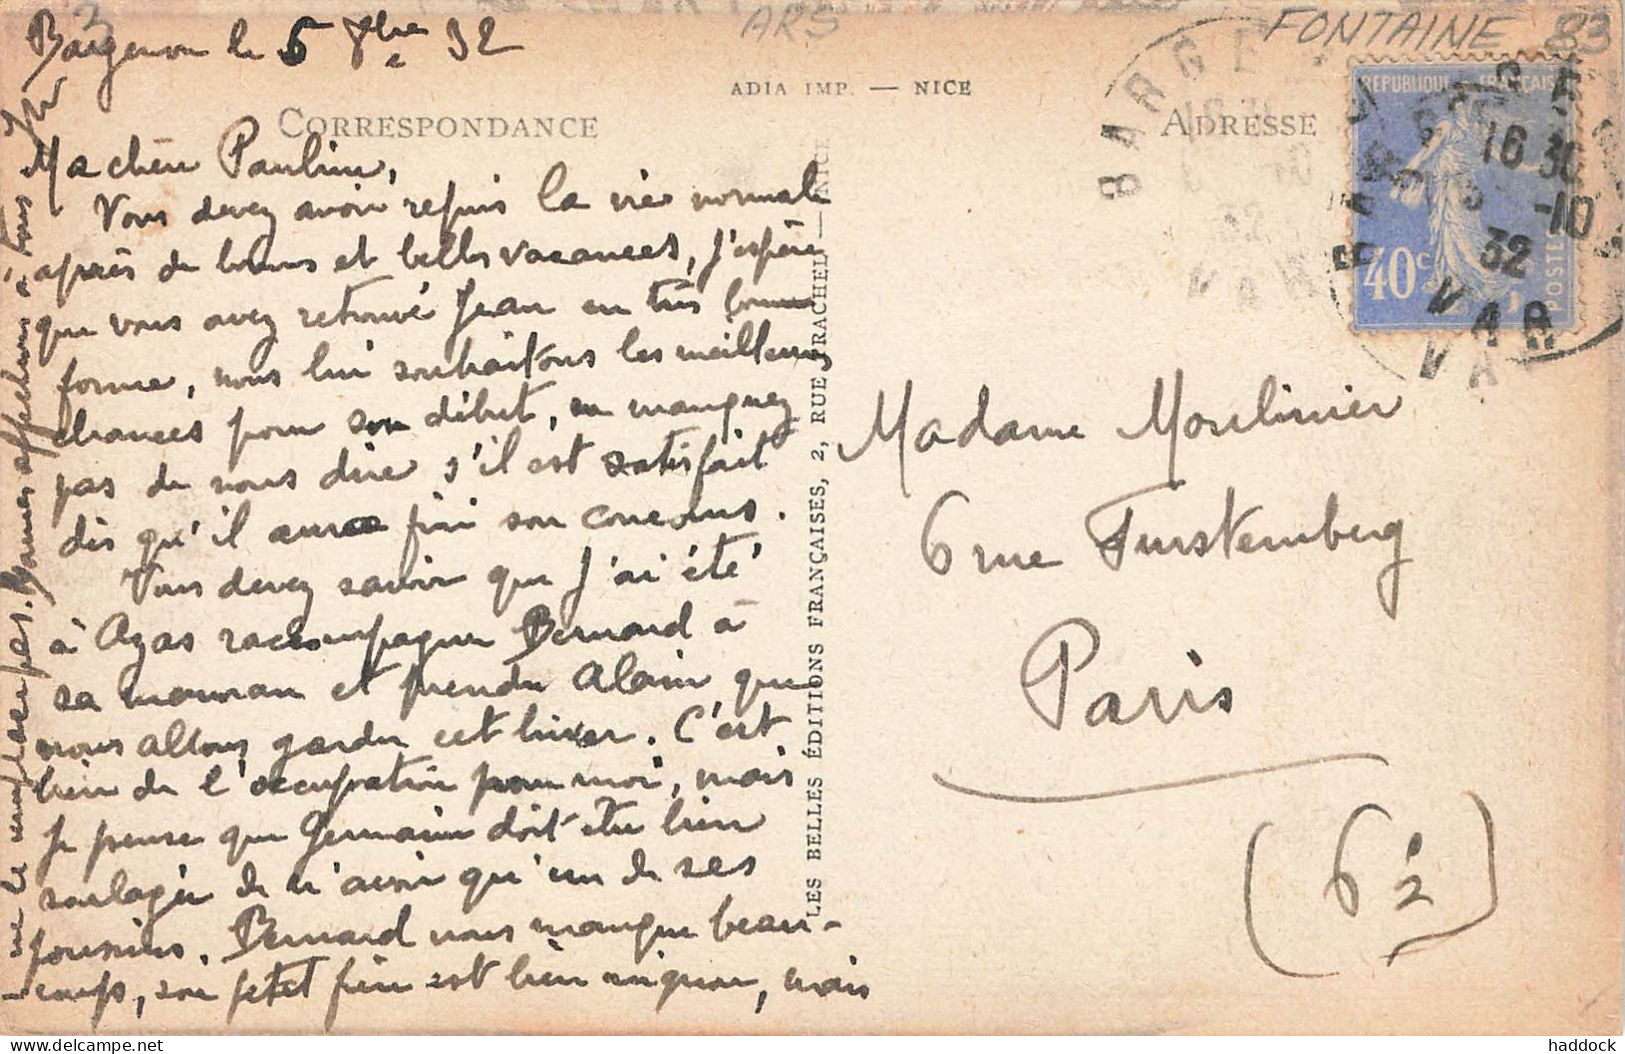 3
ARS
FONTAINE 83
Bargemon le 5 8bre 32
ADIA IMP. — NICE
CORRESPONDANCE
ADRESSE
Ma chère Pauline,
Vous devez avoir repris la vie normale
après de bonnes et belles vacances, j'espère
que vous avez retrouvé Jean en très bonne
forme, nous lui souhaitons les meilleures
chances pour son début, ne manquez
pas de nous dire s'il est satisfait
dès qu'il aura fini son concours.
Vous devez savoir que j'ai été
à Azas raccompagner Bernard à
sa maman et prendre Alain que
nous allons garder cet hiver. C'est
bien de l'occupation pour moi, mais
je pense que Germain doit être bien
soulagée de n'avoir qu'un de ses
poussins. Bernard nous manque beau-
-coup, son petit frère est bien mignon, mais
ne le remplace pas. Bonnes affections à tous
LES BELLES ÉDITIONS FRANÇAISES, 2, RUE TRACHEL — NICE
REPUBLIQUE FRANÇAISE
40c
POSTES
BARGE
VAR
16 30
-10
32
VAR
Madame Moulinier
6 rue Furstemberg
Paris
(6e)
haddock